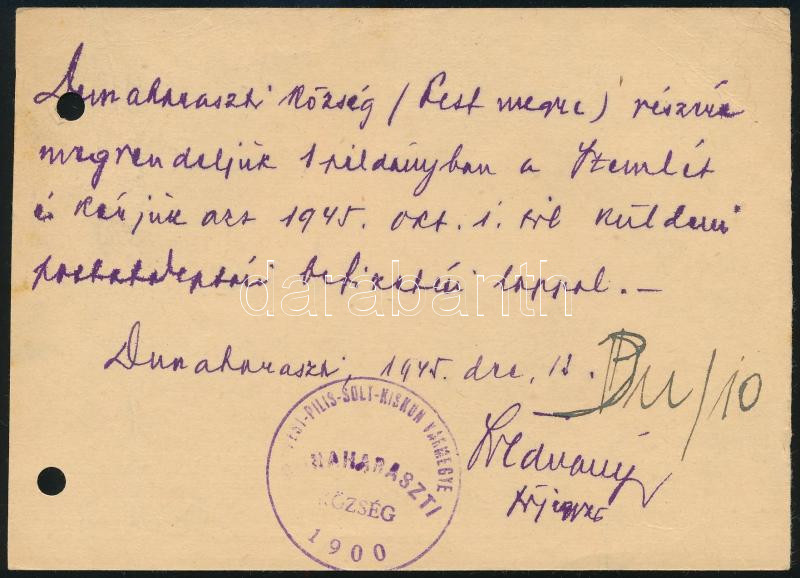 Dunaharaszti Község (Pest megye) részére
megrendeljük 1 példányban a Szemlét
és kérjük azt 1945. okt. 1. től küldeni
befizetési lappal. —
Dunaharaszti, 1945. dec. 12.
Bu/10
főjegyző
PEST-PILIS-SOLT-KISKUN VÁRMEGYE
DUNAHARASZTI
KÖZSÉG
1900
darabanth